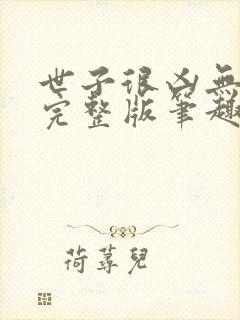 世子很凶無
完整版筆趣
荷蕁兒